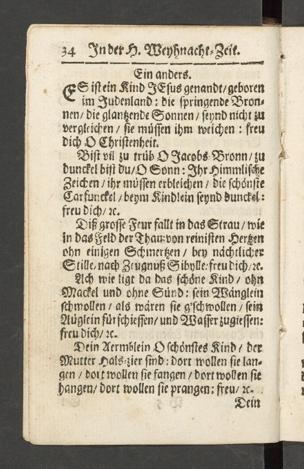 34 In der H. Weyhnacht-Zeit.
Ein anders.
ES ist ein Kind JEsus genandt/ geboren
im Judenland: die springende Bron-
nen/ die glantzende Sonnen/ seynd nicht zu
vergleichen/ sie müssen ihm weichen: freu
dich O Christenheit.
Bist vil zu trüb O Jacobs-Bronn/ zu
dunckel bist du/ O Sonn: Ihr Himmlische
Zeichen/ ihr müssen erbleichen/ die schönste
Carfunckel/ beym Kindlein seynd dunckel:
freu dich/ ꝛc.
Diß grosse Feur fallt in das Strau/ wie
in das Feld der Thau: von reinisten Hertzen
ohn einigen Schmertzen/ bey nächtlicher
Stille/ nach Zeugnuß Sibylle: freu dich/ ꝛc.
Ach wie ligt da das schöne Kind/ ohn
Mackel und ohne Sünd: sein Wänglein
schwollen/ als wären sie g'schwollen/ sein
Aüglein für schiessen/ und Wasser zugiessen:
freu dich/ ꝛc.
Dein Aermblein O schönstes Kind/ der
Mutter Hals-zier sind: dort wollen sie lan-
gen/ dort wollen sie fangen/ dort wollen sie
hangen/ dort wollen sie prangen: freu/ ꝛc.
Dein